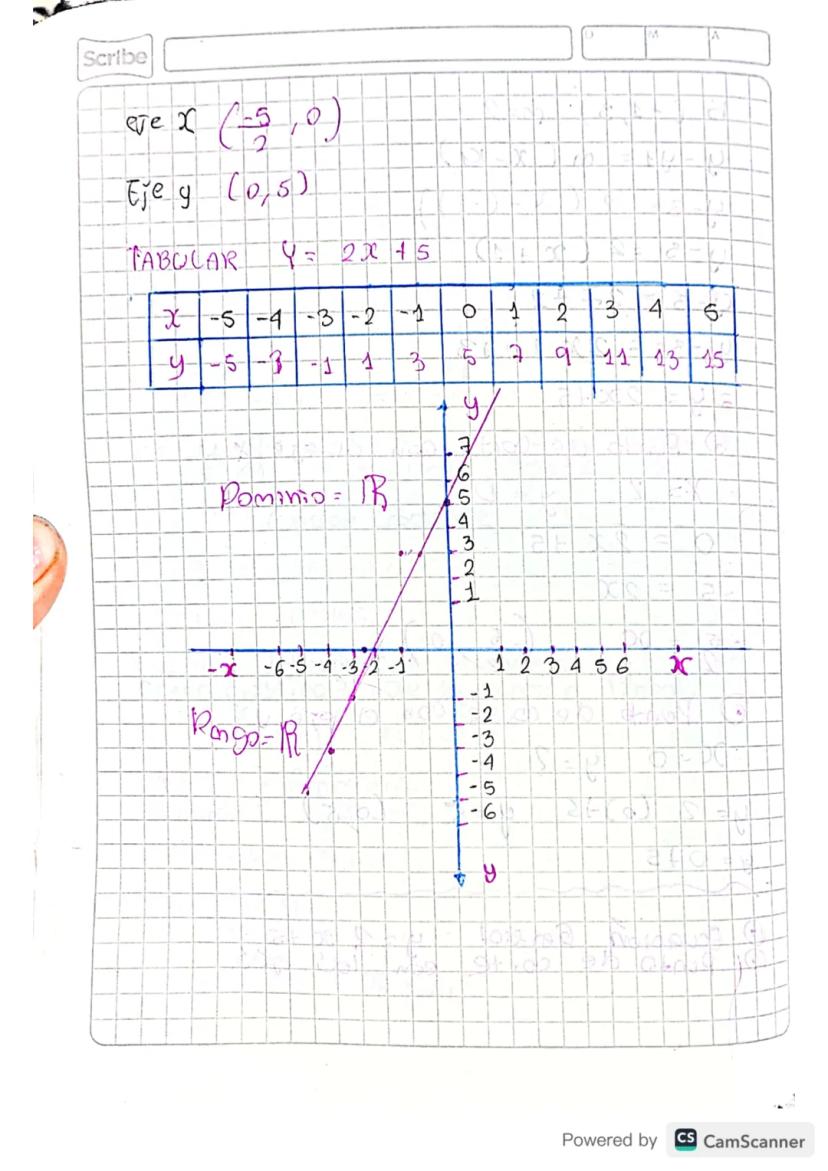 Scribe
D M A
eje x (-5/2, 0)
Eje y (0,5)
TABULAR y= 2x+5
x -5 -4 -3 -2 -1 0 1 2 3 4 5
y -5 -3 -1 1 3 5 7 9 11 13 15
y
7
6
Dominio = ℝ
5
4
3
2
1
-x -6 -5 -4 -3 -2 -1 1 2 3 4 5 6 x
-1
-2
Rango = ℝ
-3
-4
-5
-6
y
Powered by CS CamScanner